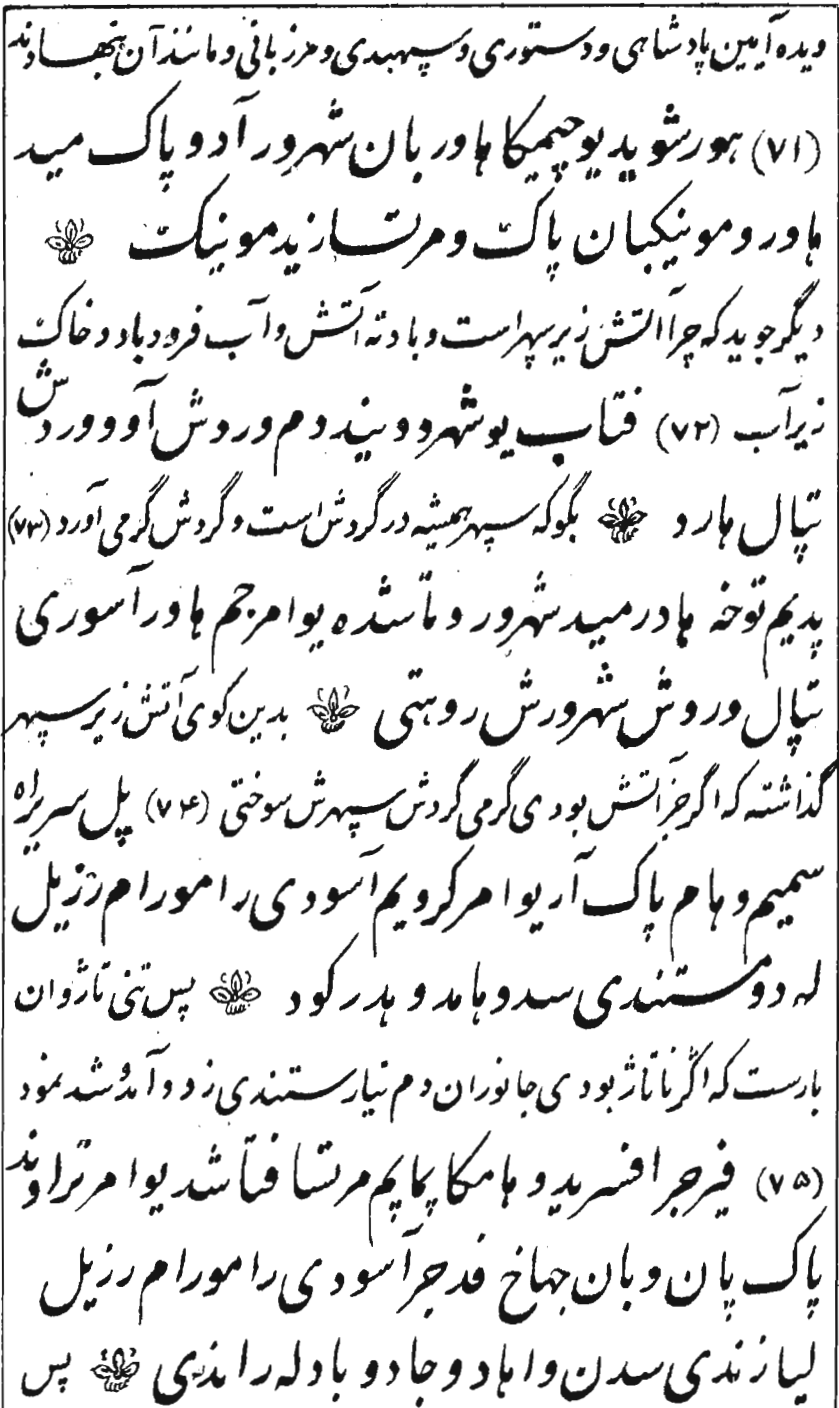 ویده آیین پادشاهی و دستوری و سپهبدی و مرزبانی و مانند آن نهاد
(۷۱) هورشو ید یو چیمیکا هاور بان شهرور آد و پاک مید
هاور و مونیکبان پاک و مرتسا زید مونیک
دیگر جوید که چرا آتش زیر سپهر است و باد ته آتش و آب فرود باد و خاک
زیر آب (۷۲) فتاب یو شهرو د بیند وم وردش آوو وردش
تپال هارد بگو که سپهر همیشه در گردش است و گردش گرمی آورد (۷۳)
پدیم توخه هادر مید شهرور و تا شده یوا مرجم هاور آسوری
تپال وروش شهرورش روهتی بدین کوی آتش زیر سپهر
گذاشته که اگر جز آتش بودی گرمی گردش سپهرش سوختی (۷۴) پل سریراه
سمیم و هام پاک آر یوا مرکرویم آسودی رامورام رزیل
له دوستندی سد و هامد و هدر کود پس تنی تاژ روان
بارست که اگر ناتاژ بودی جانوران دم نیارستندی زد و آمد و شد نمود
(۷۵) فیرجر افسرید و هامکا پاپم مرتسا فتاشد یوا مرتراوند
پاک پان و بان جهاخ فدجر آسودی رامورام رزیل
لیا زندی سدن و اهاد و جاد و بادله راندی پس